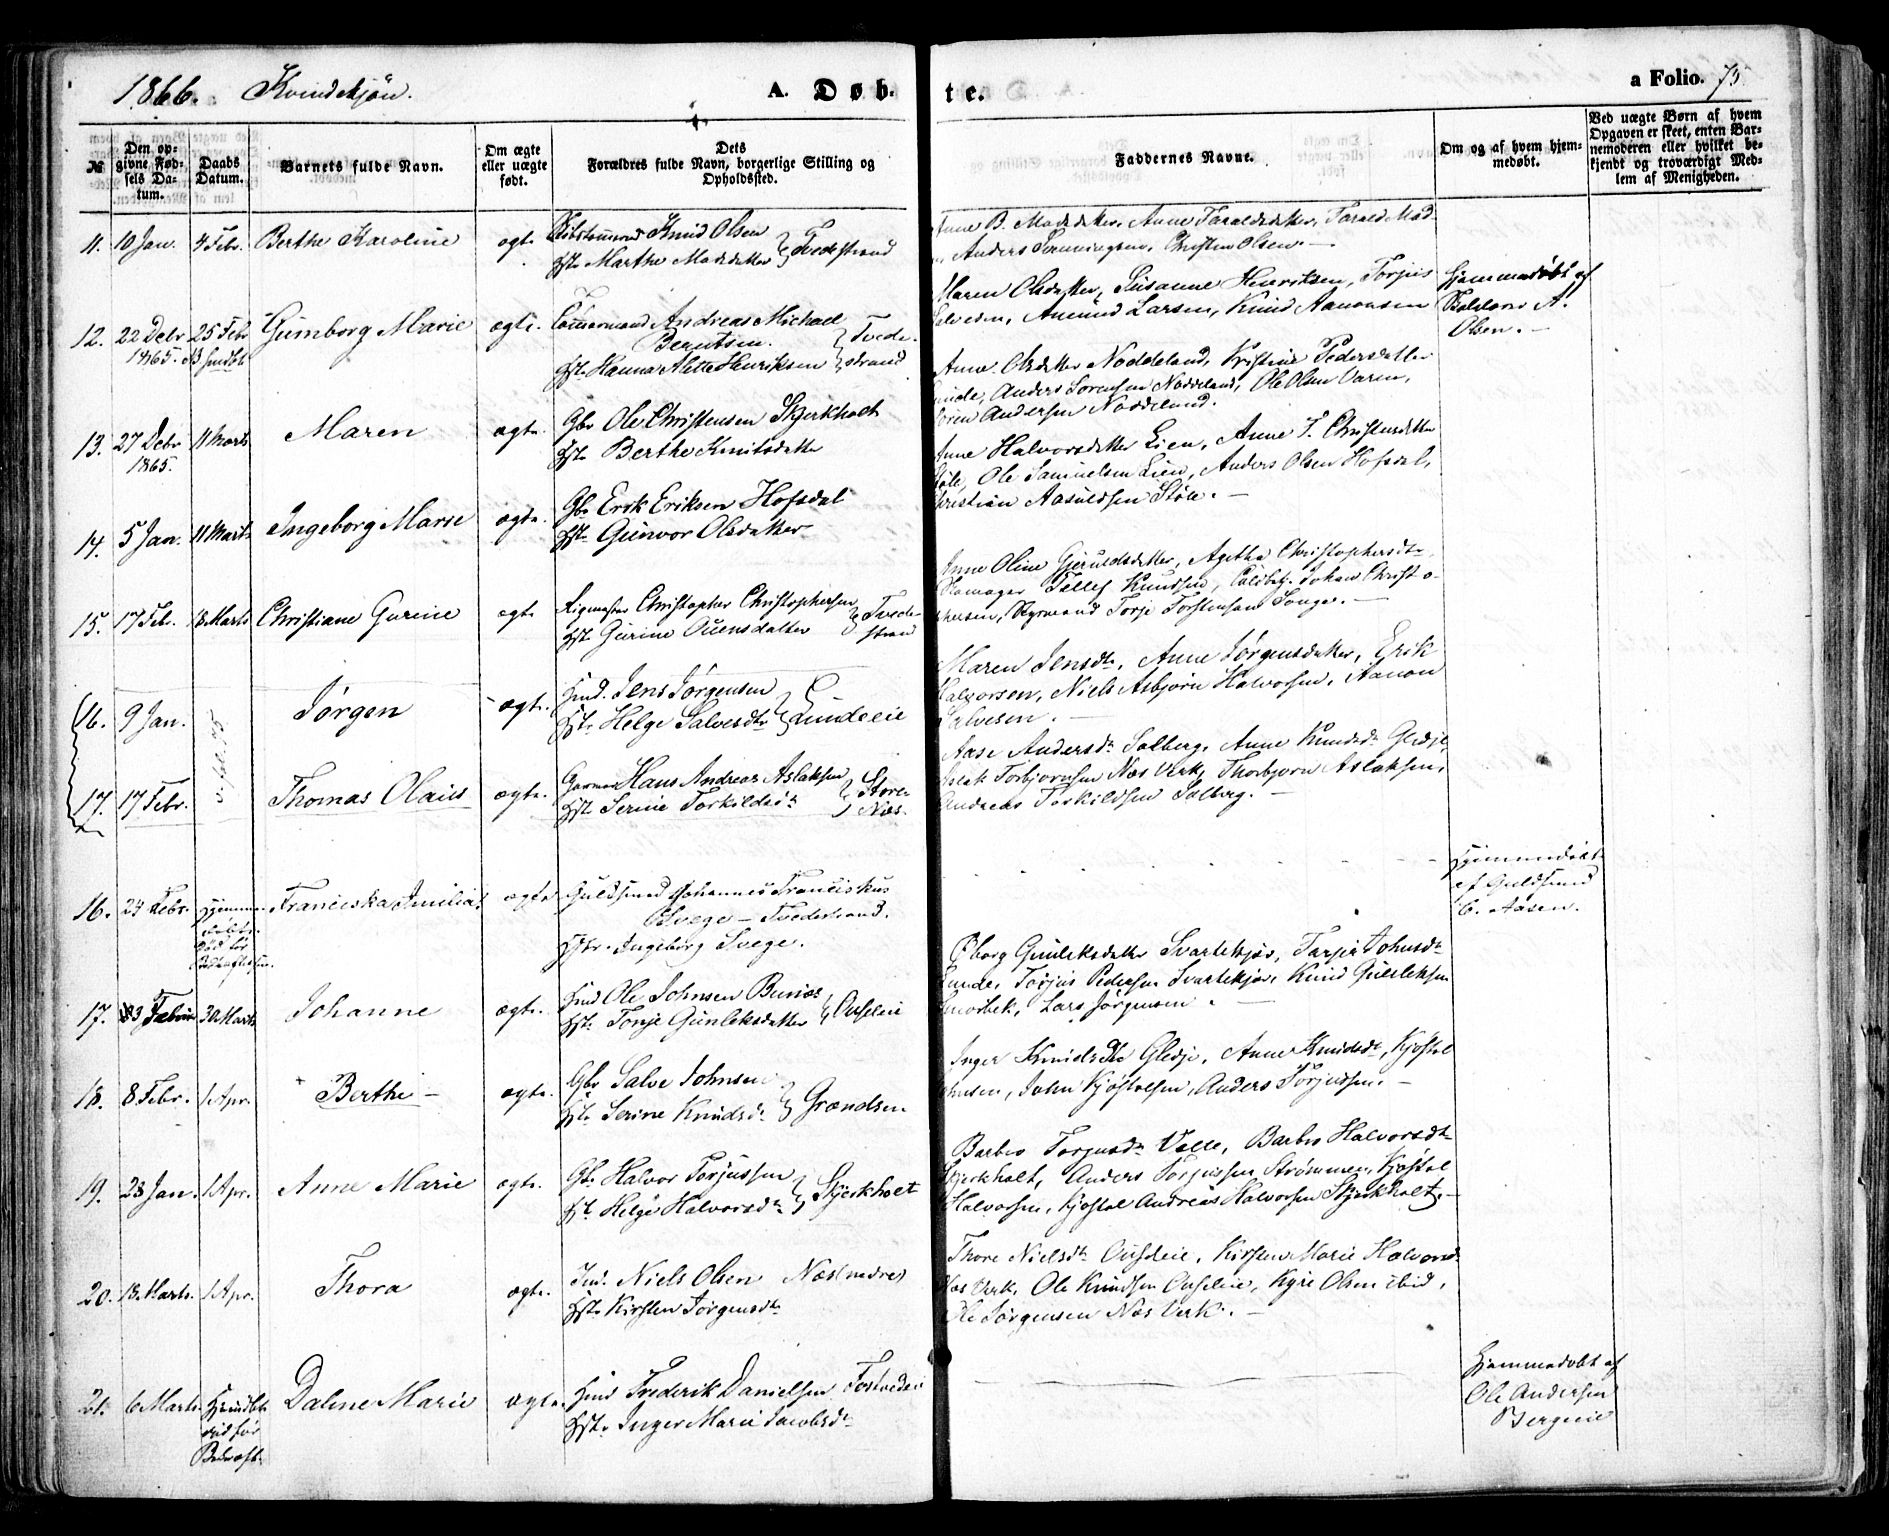 1866. Kvindekjön. A. Døb- te. a Folio. 75
No
Den op-
givne Fød-
sels Da-
tum.
Daabs
Datum.
Barnets fulde Navn.
Om ægte
eller uægte
født.
Dets
Forældres fulde Navn, borgerlige Stilling og
Opholdssted.
Faddernes Navne.
Om og af hvem hjem-
medøbt.
Ved uægte Børn af hvem
Opgaven er skeet, enten Bar-
nemoderen eller hvilket be-
kjendt og troværdigt Med-
lem af Menigheden.
11. 10 Jan. 4 Febr. Berthe Karoline ægte Knud Olsen
Hst. Marthe Madsdatter Tvedestrand
Anne B. Madsdatter, Anne Taraldsdatter, Tarald Mad-
Anders Henningsen, Christen Olsen. —
12. 22 Decbr 1865. 25 Febr Gumborg Marie ægte. Tømmermand Andreas Michael
Berntsen.
Hst. Hanna Alette Henriksen Tvede-
strand
Maren Olsdatter, Susanne Henriksen, Torjus
Salvesen, Amund Larsen, Knud Aanonsen
Hjemmedøbt af
A.
Olsen. —
13. 27 Decbr 1865. 11 Marts Maren ægte. Gbr Ole Christensen Skjerkholt
Hst. Berthe Knutsdatter
Anne Olsdatter Noddeland, Kristine Pedersdatter
Lunde, Anders Sørensen Noddeland, Ole Olsen Varen,
Søren Andersen Noddeland.
14. 5 Jan. 11 Marts Ingeborg Marie ægte. Gbr Erik Eriksen Hofsdal
Hst. Gunvor Olsdatter
Anne Halvorsdatter Lien, Anne T. Christensdatter
Støle, Ole Samuelsen Lien, Anders Olsen Hofsdal,
Christian Aasuldsen Støle. —
15. 17 Febr. 18 Marts Christiane Gurine ægte Rigmester Christopher Christophersen
Hst. Gurine Ouensdatter Tvede-
strand
Anne Oline Gjeruldsdatter, Agethe Christophersdtr,
Skomager Tellef Knudsen, Johan Christo-
phersen, Styrmand Torje Torstensen Songe. —
16. 9 Jan. Jørgen ægte. Hmd. Jens Jørgensen
Hst. Helge Salvesdtr Lundeeie
Maren Jensdtr, Anne Jørgensdatter, Erik
Halvorsen, Niels Asbjørn Halvorsen, Aanon
Salvesen. —
17. 17 Febr. Thomas Olaus ægte. Hans Andreas Aslaksen
Hst. Serine Torkildsdtr Store
Næs.
Aase Andersdtr Solberg, Anne Knudsdtr Gledje,
Aslak Torbjørnsen Næs Værk, Thorbjørn Aslaksen,
Andreas Torkildsen Solberg. —
16. 24 Febr. Hjemme-
døbt.
Død før
Franciska Emilia ægte Guldsmed Johannes Franciskus
Svege — Tvedestrand.
Hst. Ingeborg Svege.
Hjemmedøbt
af Guldsmed
C. Aasen.
17. 3 Febr 30 Marts Johanne ægte. Hmd Ole Johnsen Bunæs
Hst. Tonje Gunleksdatter Ouseleie
Gunleksdatter Svartekjær, Torjer Johnsdtr
Lunde, Torjus Pedersen Svartekjær, Knud Gunleksen
Lars Jørgensen. —
18. 8 Febr. 1 Apr. Berthe — ægte. Gbr Salve Johnsen
Hst. Serine Knudsdtr Grændsen
Inger Knudsdtr Gledje, Anne Knudsdtr, Kjøstol
Johnsen, John Kjøstolsen, Anders Torjussen. —
19. 23 Jan. 1 Apr. Anne Marie ægte. Gbr Halvor Torjussen
Hst. Helge Halvorsdtr Skjerkholt
Barbro Torjusdtr Valle, Barbro Halvorsdtr
Skjerkholt, Anders Torjussen Strømmen, Kjøstol
Halvorsen, Kjøstol Andreas Halvorsen Skjerkholt. —
20. 13 Marts. 1 Apr. Thora ægte. Ind. Niels Olsen Næs (nedre)
Hst. Kirsten Jørgensdtr
Thore Nielsdtr Ouseleie, Kirsten Marie Halvorsd.
Næs Værk, Ole Knudsen Ouseleie, Kyre Olsen ibid,
Ole Jørgensen Næs Værk. —
21. 6 Marts. Hjemdøbt
død før
Dahne Marie ægte. Hmd Frederik Danielsen Fosteveien
Hst. Inger Marie Jacobsdtr
Hjemmedøbt af
Ole Andersen
Bergeie